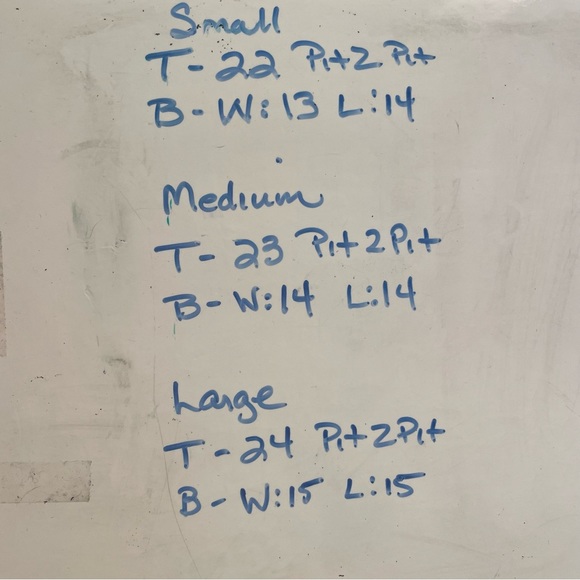 Small
T - 22 Pit 2 Pit
B - W: 13 L: 14
Medium
T - 23 Pit 2 Pit
B - W: 14 L: 14
Large
T - 24 Pit 2 Pit
B - W: 15 L: 15